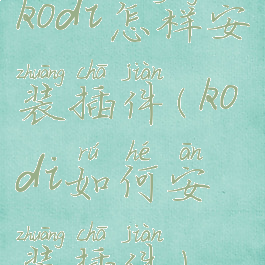 kodi怎样安
zhuāng chā jiàn
装插件(ko
rú hé ān
di如何安
zhuāng chā jiàn
装插件)